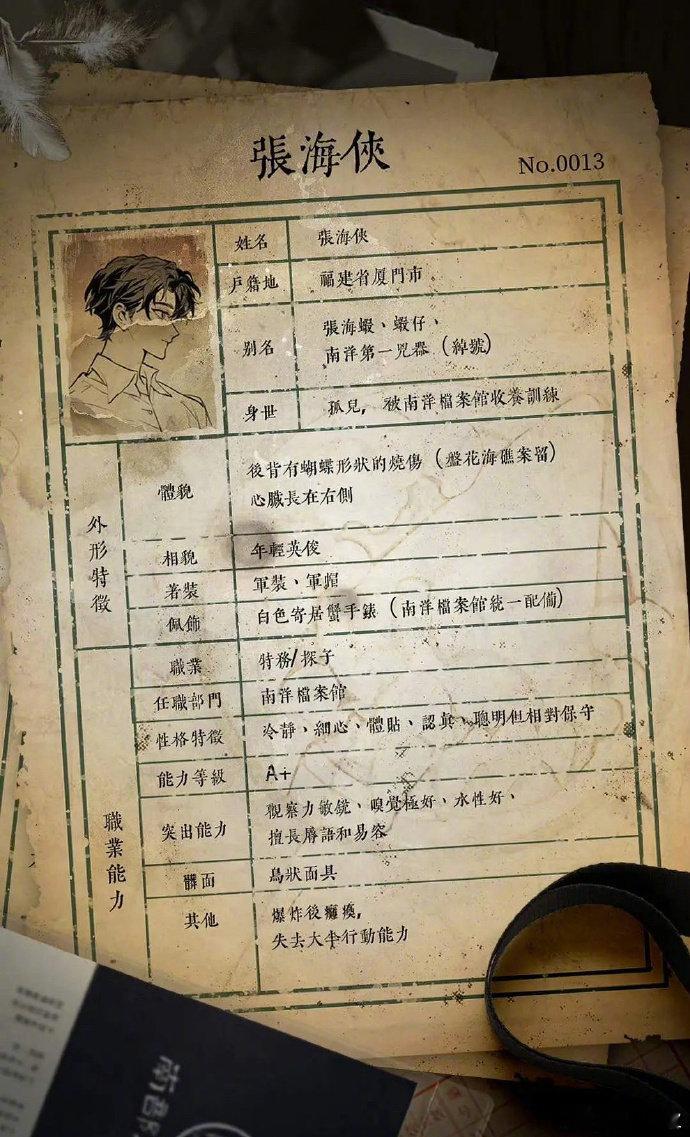 張海俠
No.0013
姓名 張海俠
戶籍地 福建省厦門市
别名 張海蝦、蝦仔、
南洋第一兇器（綽號）
身世 孤兒，被南洋檔案館收養訓練
外形特徵
體貌 後背有蝴蝶形狀的燒傷（盤花海礁案留）
心臟長在右側
相貌 年輕英俊
著裝 軍裝、軍帽
佩飾 白色寄居蟹手錶（南洋檔案館統一配備）
職業能力
職業 特務/探子
任職部門 南洋檔案館
性格特徵 冷靜、細心、體貼、認真、聰明但相對保守
能力等級 A+
突出能力 觀察力敏銳、嗅覺極好、水性好、
擅長唇語和易容
髒面 鳥狀面具
其他 爆炸後癱瘓，
失去大半行動能力